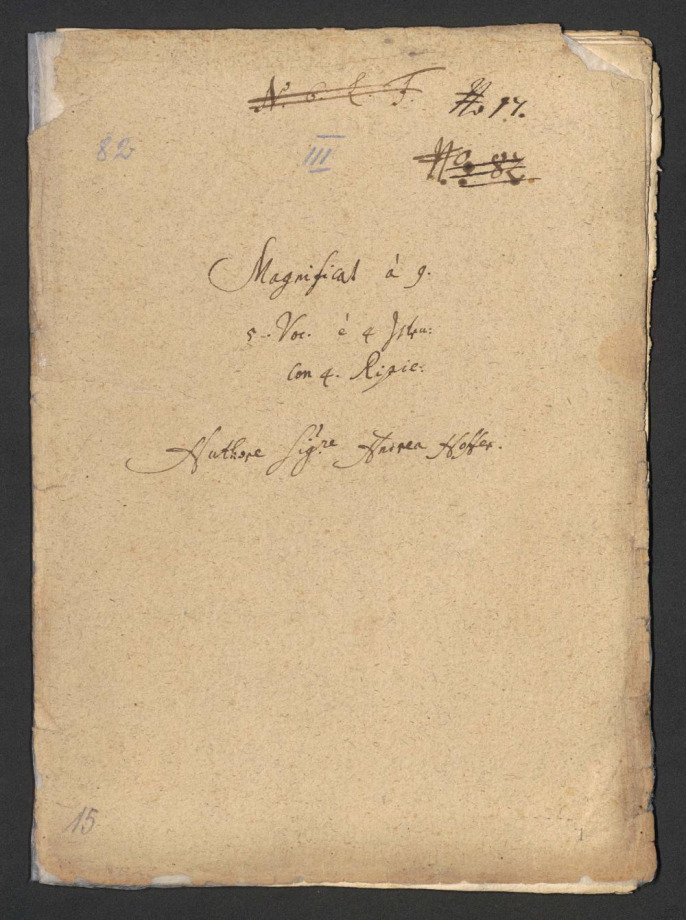 N. 6. L. F. No 17.
82 III No. 82.
Magnificat à 9.
5. Voc. è 4 Istru:
Con 4. Ripie:
Authore Sig:re Andrea Hofer.
15
1